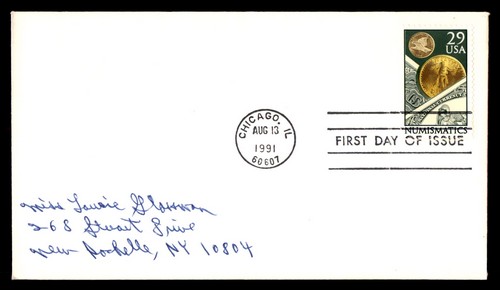 29
USA
NUMISMATICS
CHICAGO, IL
AUG 13
1991
60607
FIRST DAY OF ISSUE
Miss Laurie
268 Stuart Drive
New Rochelle, NY 10804